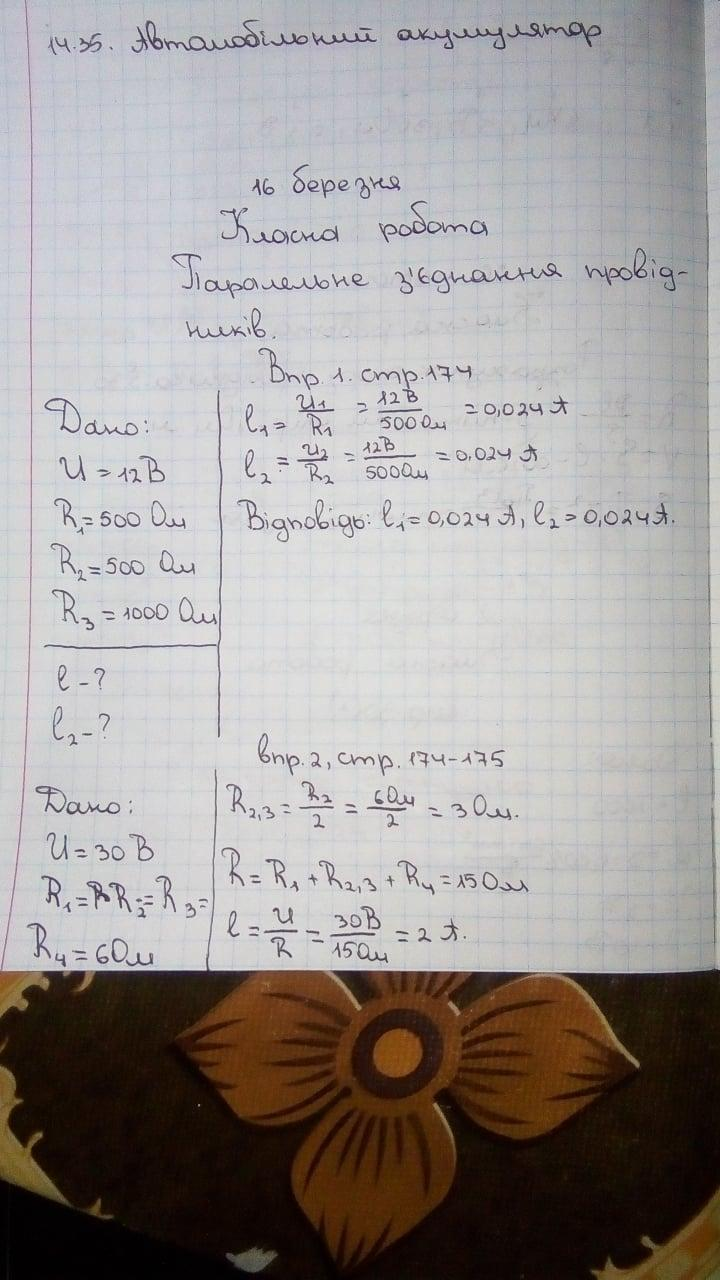 14.35. Автомобільний акумулятор
16 березня
Класна робота
Паралельне з'єднання провід-
ників.
Впр. 1. стр. 174
Дано:
U = 12 В
R₁ = 500 Ом
R₂ = 500 Ом
R₃ = 1000 Ом
l - ?
l₂ - ?
l₁ = U₁/R₁ = 12 В/500 Ом = 0,024 А
l₂ = U₂/R₂ = 12В/500Ом = 0,024 А
Відповідь: l₁ = 0,024 А, l₂ = 0,024 А.
впр. 2, стр. 174-175
Дано:
U = 30 В
R₁ = R₂ = R₃ =
R₄ = 6 Ом
R₂,₃ = R₂/2 = 6Ом/2 = 3 Ом.
R = R₁ + R₂,₃ + R₄ = 15 Ом
l = U/R = 30В/15Ом = 2 А.